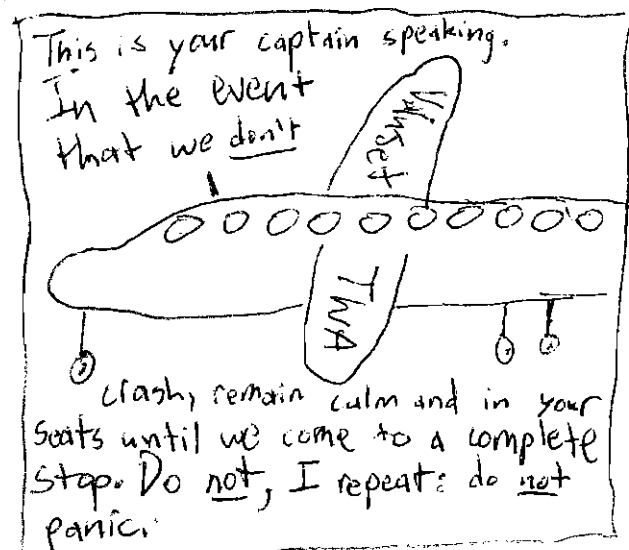 This is your captain speaking.
In the event
that we don't
ValuJet
TWA
crash, remain calm and in your
seats until we come to a complete
stop. Do not, I repeat: do not
panic.